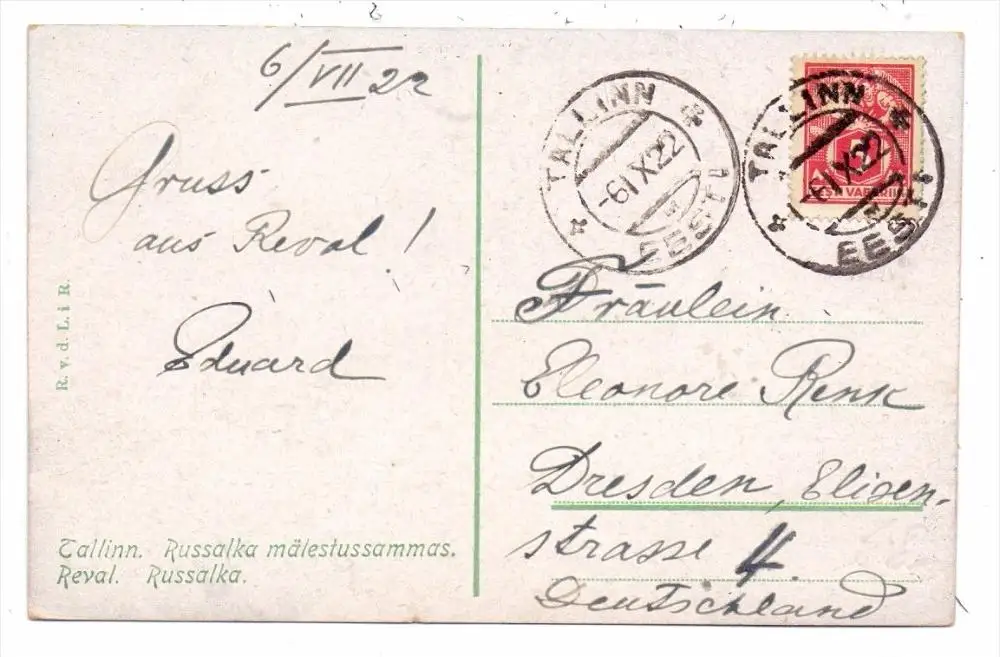 6/VII 22
Gruss
aus Reval!
Eduard
R. v. d. L. i R.
Tallinn. Russalka mälestussammas.
Reval. Russalka.
TALLINN
-6IX22
EESTI
TALLINN
-6IX22
EESTI
EESTI VABARIIK
5
Fräulein
Eleonore Renk
Dresden, Elisen-
strasse 4.
Deutschland